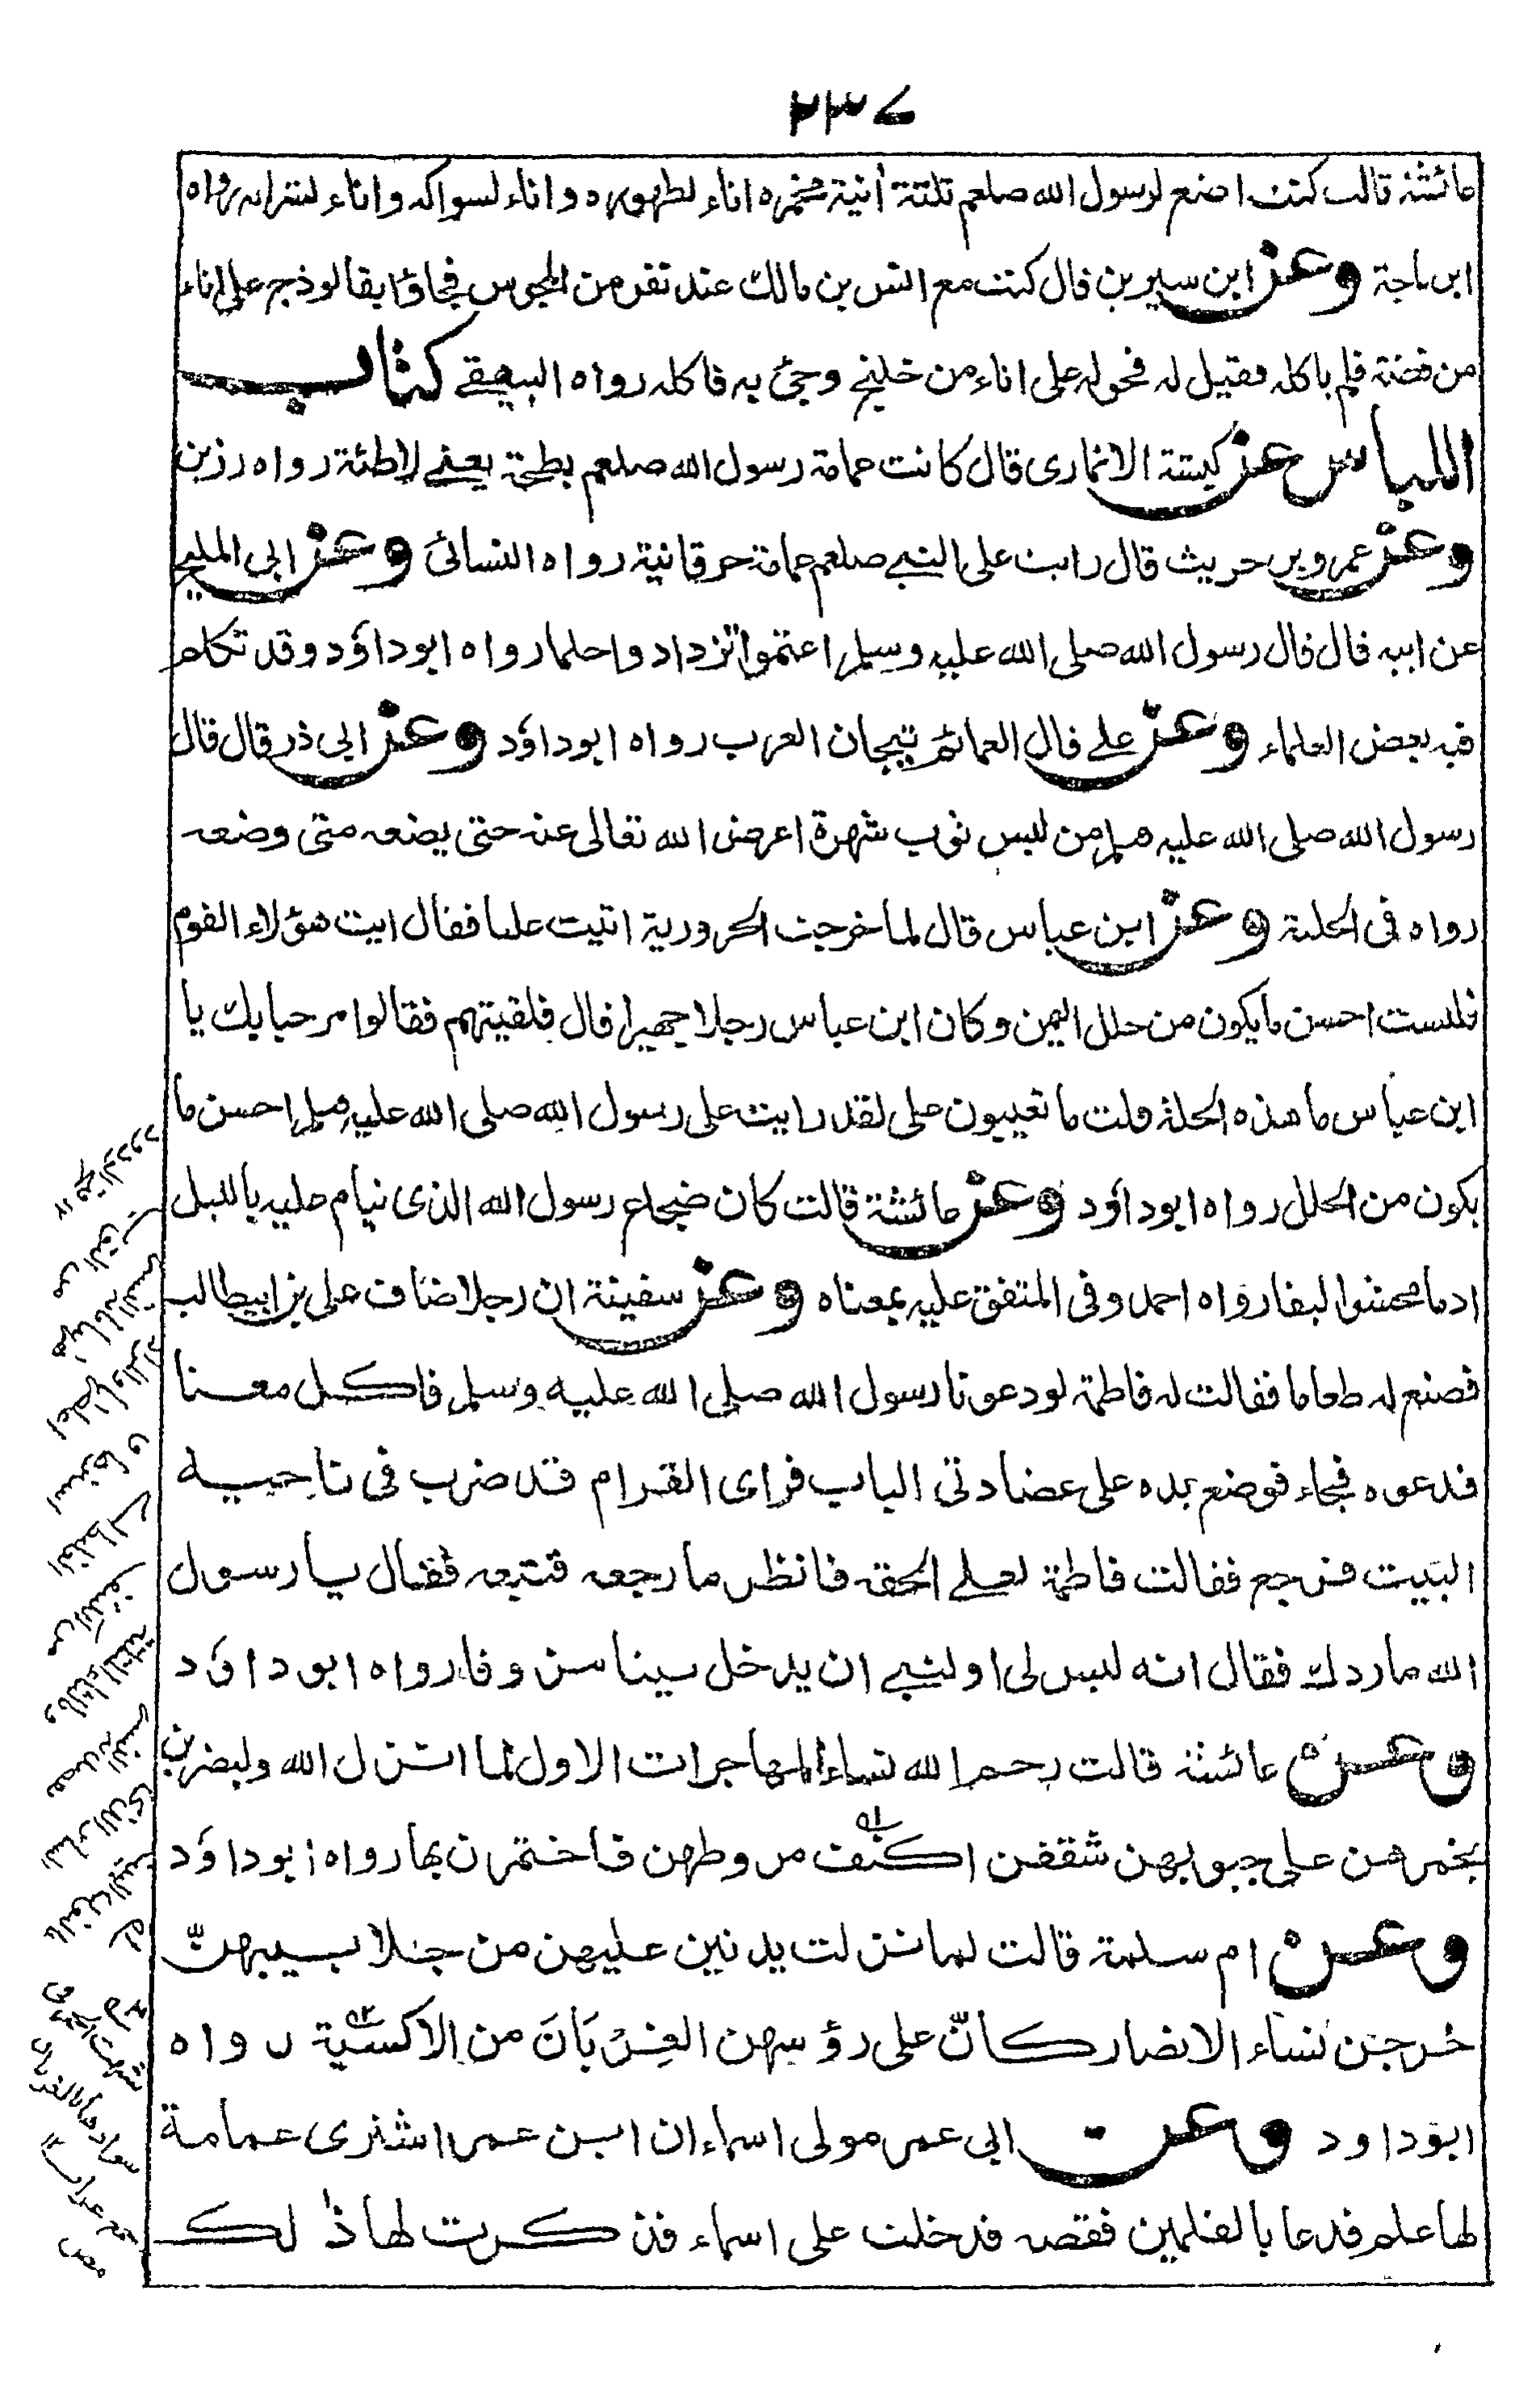 ٢٣٧
عائشة قالت كنت اضع لرسول الله صلعم ثلثة أنية مخمرة اناء لطهوره واناء لسواكه واناء لشرابه رواه
ابن ماجة وعن ابن سيرين قال كنت مع انس بن مالك عند نفر من المجوس فجاؤا بفالوذج على اناء
من فضة فلم ياكله فقيل له فحوله على اناء من خلنج وجئ به فاكله رواه البيهقے كتاب
اللباس عن كبشة الانمارى قال كانت عمامة رسول الله صلعم بطحة يعنے لاطئة رواه رزين
وعن عمرو بن حريث قال رايت على النبے صلعم عمامة حرقانية رواه النسائى وعن ابى المليح
عن ابيه قال قال رسول الله صلى الله عليه وسلم اعتموا تزدادوا حلما رواه ابوداؤد وقد تكلم
فيه بعض العلماء وعن علے قال العمائم تيجان العرب رواه ابوداؤد وعن ابى ذر قال قال
رسول الله صلى الله عليه وسلم من لبس ثوب شهرة اعرض الله تعالى عنه حتى يضعه متى وضعه
رواه فى الحلية وعن ابن عباس قال لما خرجت الحرورية اتيت عليا فقال ايت هؤلاء القوم
فلبست احسن ما يكون من حلل اليمن وكان ابن عباس رجلا جهيرا قال فلقيتهم فقالوا مرحبا بك يا
ابن عباس ما هذه الحلة قلت ما تعيبون على لقد رايت على رسول الله صلى الله عليه وسلم احسن ما
يكون من الحلل رواه ابوداؤد وعن عائشة قالت كان ضجاع رسول الله الذى ينام عليه بالليل
ادما محشوا ليفا رواه احمد وفى المتفق عليه بمعناه وعن سفينة ان رجلا ضاف على بن ابيطالب
فصنع له طعاما فقالت له فاطمة لو دعونا رسول الله صلى الله عليه وسلم فاكل معنا
فدعوه فجاء فوضع يده على عضادتى الباب فراى القرام قد ضرب فى ناحية
البيت فرجع فقالت فاطمة لعلے الحقه فانظر ما رجعه فتبعه فقال يا رسول
الله ما ردك فقال انه ليس لى او لنبے ان يدخل بيتا مزوقا رواه ابوداؤد
وعن عائشة قالت رحم الله نساء المهاجرات الاول لما انزل الله وليضربن
بخمرهن على جيوبهن شققن اكنف مروطهن فاختمرن بها رواه ابوداؤد
وعن ام سلمة قالت لما نزلت يدنين عليهن من جلابيبهنّ
خرجن نساء الانصار كانّ على رؤسهن الغِرْبَانَ من الاكسية رواه
ابوداود وعن ابى عمر مولى اسماء ان ابن عمر اشترى عمامة
لها علم فدعا بالقلمين فقصه فدخلت على اسماء فذكرت لها ذلك